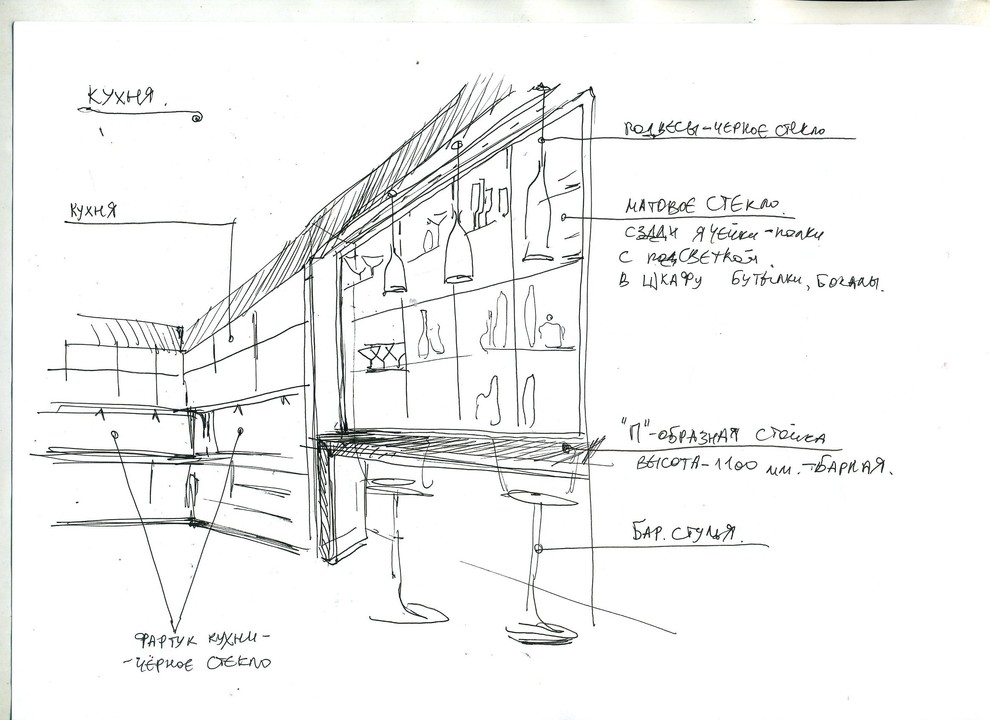 КУХНЯ.
КУХНЯ
ПОДВЕСЫ-ЧЕРНОЕ СТЕКЛО
МАТОВОЕ СТЕКЛО.
СЗАДИ ЯЧЕЙКИ-ПОЛКИ
С ПОДСВЕТКОЙ.
В ШКАФУ БУТЫЛКИ, БОКАЛЫ.
"П"-ОБРАЗНАЯ СТОЙКА
ВЫСОТА-1100 мм.-БАРНАЯ.
БАР. СТУЛЬЯ.
ФАРТУК КУХНИ-
-ЧЁРНОЕ СТЕКЛО